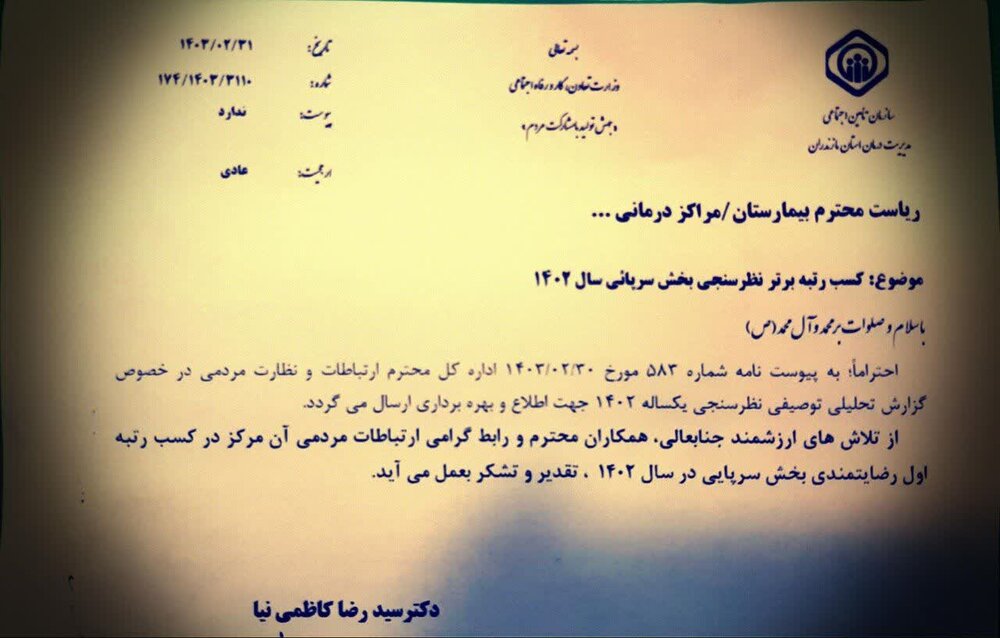 بسمه تعالی
وزارت تعاون، کار و رفاه اجتماعی
«جهش تولید با مشارکت مردم»
سازمان تأمین اجتماعی
مدیریت درمان استان مازندران
تاریخ: ۱۴۰۳/۰۲/۳۱
شماره: ۱۷۴/۱۴۰۳/۳۱۱۰
پیوست: ندارد
ارجحیت: عادی
ریاست محترم بیمارستان /مراکز درمانی ...
موضوع: کسب رتبه برتر نظرسنجی بخش سرپائی سال ۱۴۰۲
باسلام و صلوات بر محمد و آل محمد (ص)
احتراماً؛ به پیوست نامه شماره ۵۸۳ مورخ ۱۴۰۳/۰۲/۳۰ اداره کل محترم ارتباطات و نظارت مردمی در خصوص
گزارش تحلیلی توصیفی نظرسنجی یکساله ۱۴۰۲ جهت اطلاع و بهره برداری ارسال می گردد.
از تلاش های ارزشمند جنابعالی، همکاران محترم و رابط گرامی ارتباطات مردمی آن مرکز در کسب رتبه
اول رضایتمندی بخش سرپایی در سال ۱۴۰۲ ، تقدیر و تشکر بعمل می آید.
دکترسید رضا کاظمی نیا